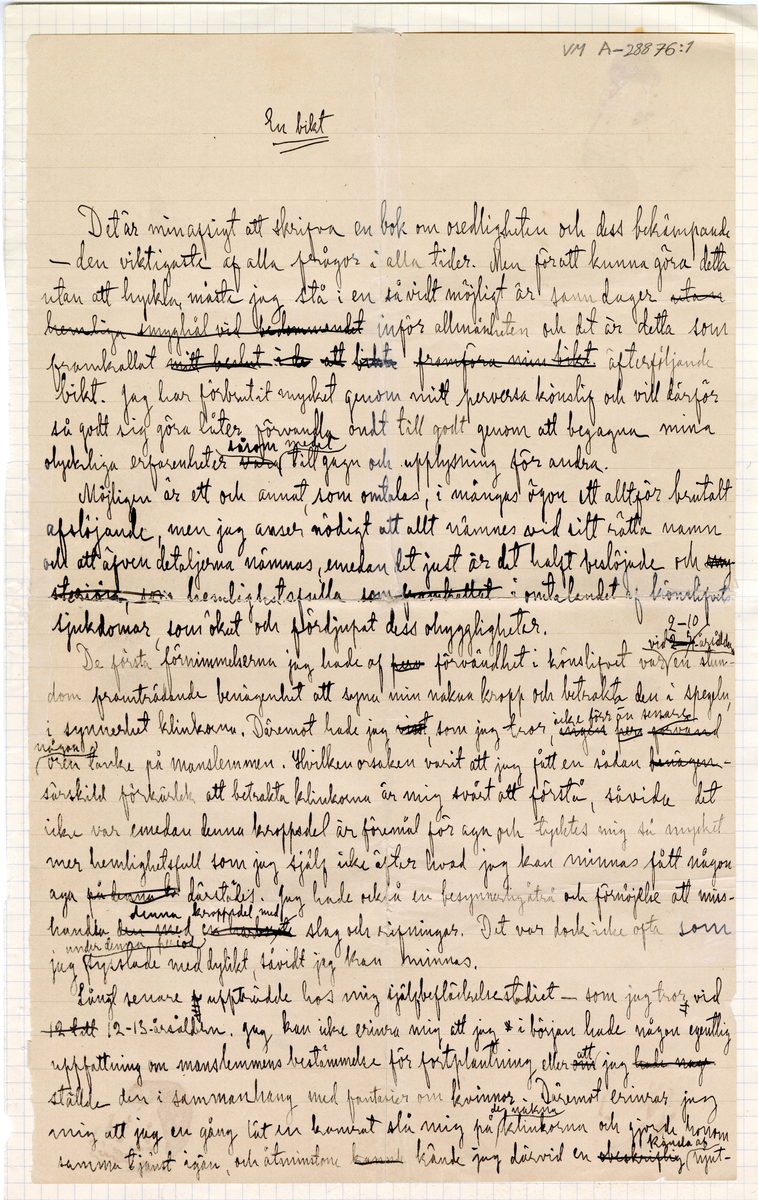 VM A-28876:1
En bikt
Det är min afsigt att skrifva en bok om osedligheten och dess bekämpande
— den viktigaste af alla frågor i alla tider. Men för att kunna göra detta
utan att hyckla, måste jag stå i en så vidt möjligt är sann dager
hemliga smyghål vid bedömmandet inför allmänheten och det är detta som
framkallat mitt beslut att bikta framföra min bikt. efterföljande
bikt. Jag har förbrutit mycket genom mitt perversa könslif och vill därför
så godt sig göra låter förvandla ondt till godt genom att begagna mina
såsom medel
olyckliga erfarenheter till gagn och upplysning för andra.
Möjligen är ett och annat, som omtalas, i mångas ögon ett alltför brutalt
afslöjande, men jag anser nödigt att allt nämnes vid sitt rätta namn
och att äfven detaljerna nämnas, emedan det just är det halft beslöjade och my-
steriösa, hemlighetsfulla som framkallat i omtalandet af könslifvets
sjukdomar, som ökat och fördjupat dess ohyggligheter.
9-10
vid årsåldern
De första förnimmelserna jag hade af perv förvändhet i könslifvet var en stun-
dom framträdande benägenhet att syna min nakna kropp och betrakta den i spegeln,
icke förr än senare
i synnerhet klinkorna. Däremot hade jag, som jag tror, ingen förvänd
någon
tanke på manslemmen. Hvilken orsaken varit att jag fått en sådan benägen-
särskild förkärlek att betrakta klinkorna är mig svårt att förstå, såvida det
icke var emedan denna kroppsdel är föremål för aga och tycktes mig så mycket
mer hemlighetsfull som jag själf icke efter hvad jag kan minnas fått någon
aga på denna därstädes. Jag hade också en besynnerlig åtrå och förnöjelse att miss-
denna kroppsdel med
handla den med slag och rifningar. Det var dock icke ofta som
under denna period
jag sysslade med dylikt, såvidt jag kan minnas.
Långt senare uppträdde hos mig själfbefläckelsestadiet — som jag tror vid
12 till 12-13-årsåldern. Jag kan icke erinra mig att jag i början hade någon egentlig
att
uppfattning om manslemmens bestämmelse för fortplantning, eller om jag hade någ
ställde den i sammanhang med fantasier om kvinnor. Däremot erinrar jag
de nakna
mig att jag en gång lät en kamrat slå mig på klinkorna och gjorde honom
känsla af
samma tjänst igen, och åtminstone kände jag därvid en obeskriflig njut-